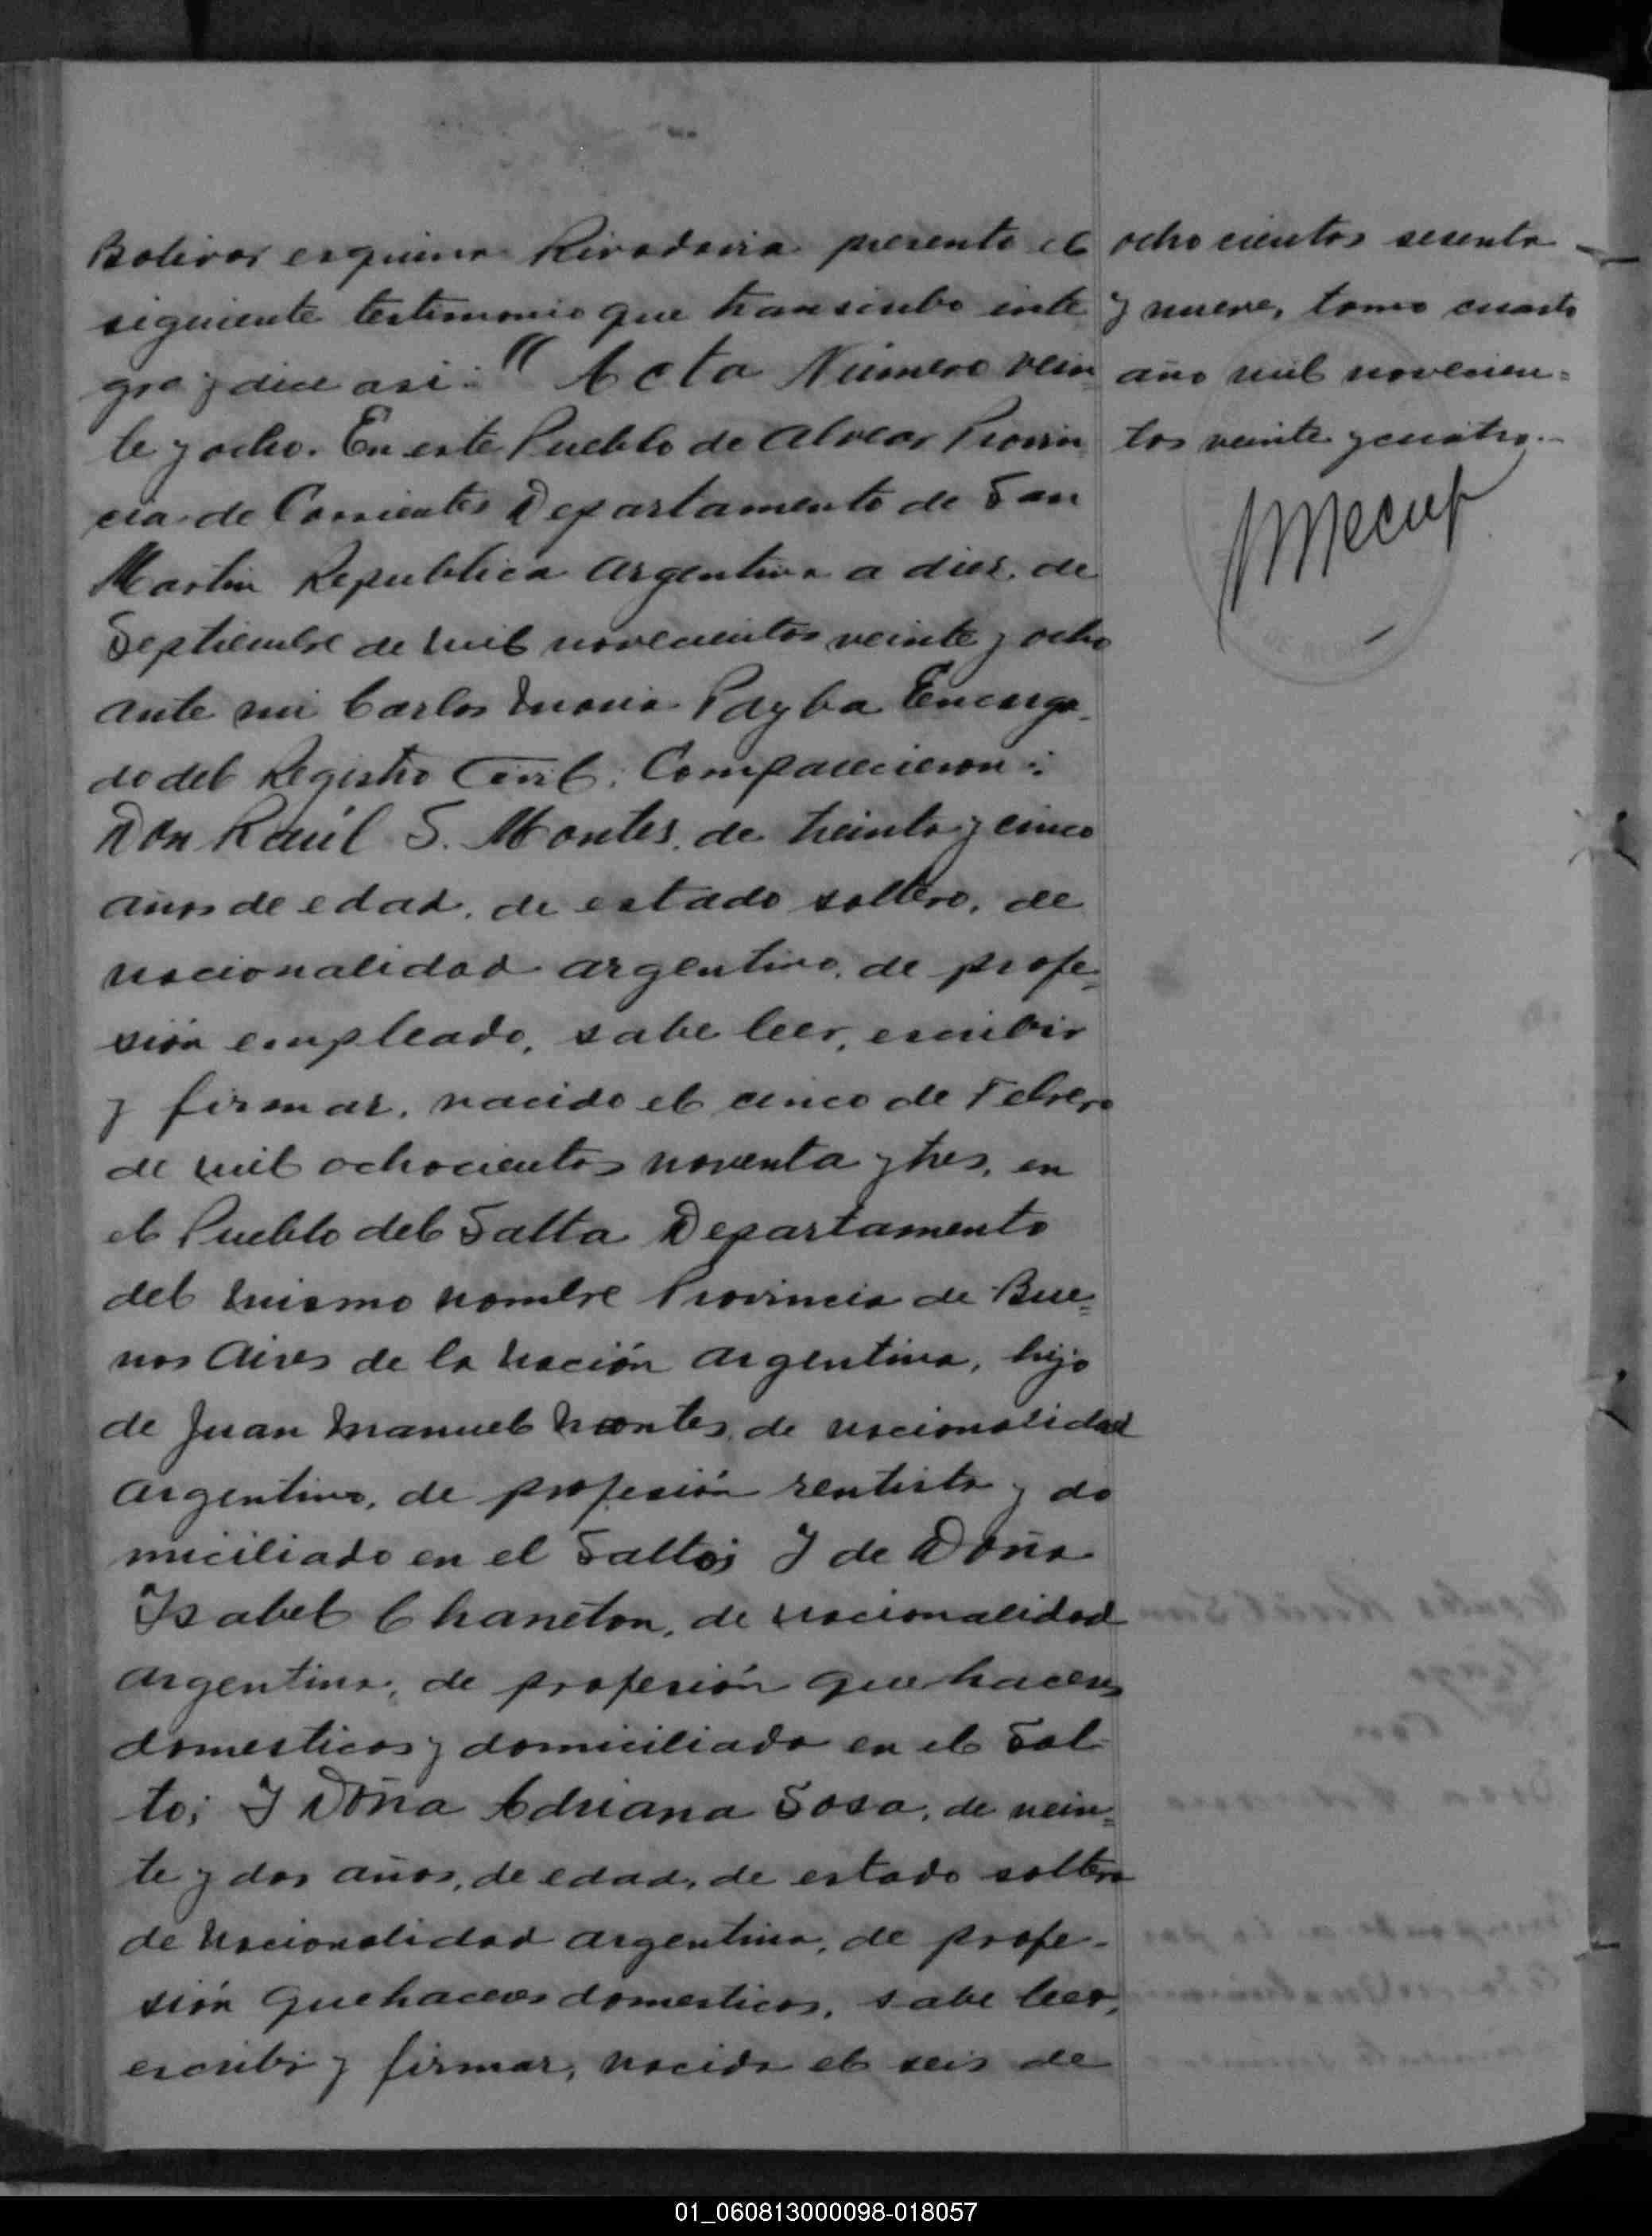 Bolivar esquina Rivadavia presenta el
siguiente testimonio que transcribo inte
gro y dice asi: "Acta Número vein
te y ocho. En este Pueblo de Alvear Provin
cia de Corrientes Departamento de San
Martin Republica Argentina a diez de
Septiembre de mil novecientos veinte y ocho
ante mi Carlos Maria Payba Encarga-
do del Registro Civil; Comparecieron:
Don Raúl S. Montes, de treinta y cinco
años de edad, de estado soltero, de
nacionalidad argentino, de profe=
sión empleado, sabe leer, escribir
y firmar, nacido el cinco de Febrero
de mil ochocientos noventa y tres, en
el Pueblo del Salta Departamento
del mismo nombre Provincia de Bue=
nos Aires de la Nación Argentina, hijo
de Juan Manuel Montes, de nacionalidad
argentino, de profesión rentista y do
miciliado en el Salto; Y de Doña
Ysabel Chaneton, de nacionalidad
argentina, de profesión quehaceres
domesticos y domiciliada en el Sal
to; Y Doña Adriana Sosa, de vein=
te y dos años, de edad, de estado soltera
de nacionalidad argentina, de profe-
sión quehaceres domesticos, sabe leer,
escribir y firmar, nacida el seis de
ochocientos sesenta
y nueve, tomo cuarto
año mil novecien=
tos veinte y cuatro.-
01_060813000098-018057